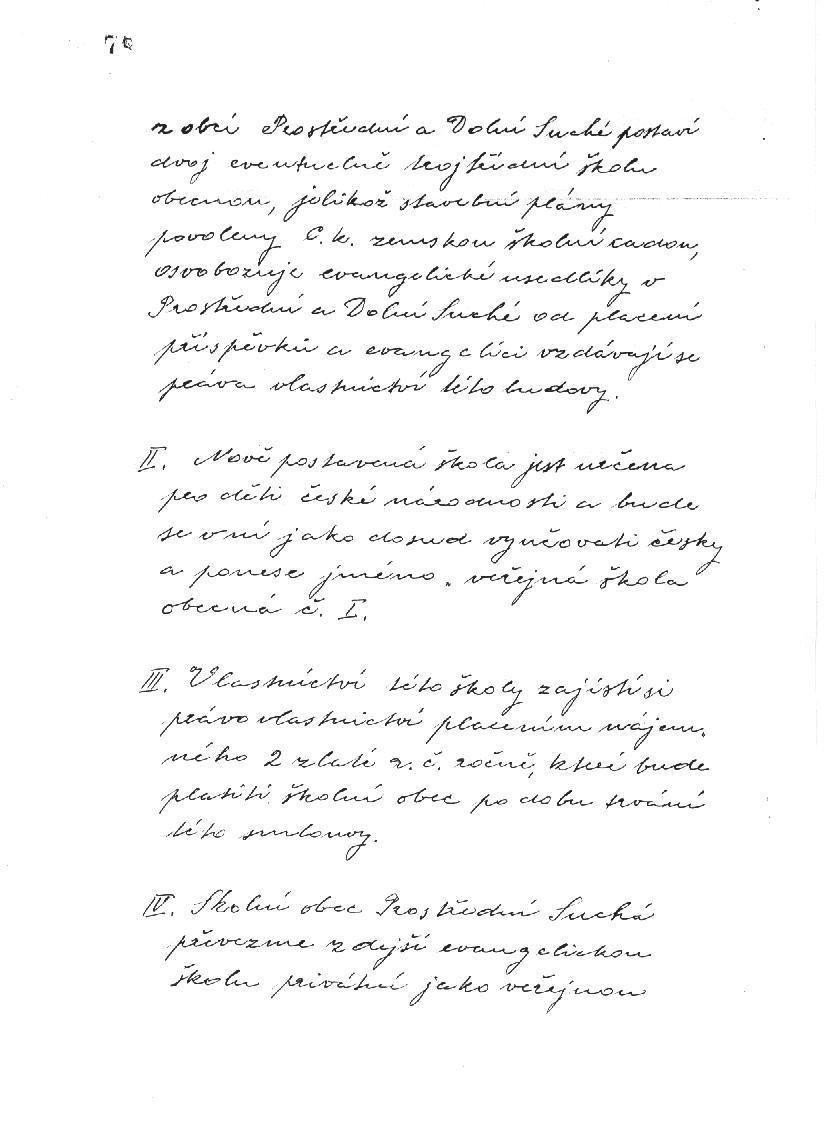 70
z obcí Prostřední a Dolní Suché postaví
dvoj eventuelně trojtřídní školu
obecnou, jelikož stavební plány
povoleny C. k. zemskou školní radou,
osvobozuje evangelické usedlíky v
Prostřední a Dolní Suché od placení
příspěvků a evangelíci vzdávají se
práva vlastnictví této budovy.
II. Nově postavená škola jest určena
pro děti české národnosti a bude
se v ní jako dosud vyučovati česky
a ponese jméno „ veřejná škola
obecná č. I.
III. Vlastnictví této školy zajistí si
právo vlastnictví placením nájem„
ného 2 zlatí r. č. ročně, které bude
platiti školní obec po dobu trvání
této smlouvy.
IV. Školní obec Prostřední Suchá
převezme zdejší evangelickou
školu privátní jako veřejnou